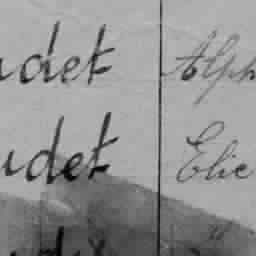 udet Alph
udet Elie